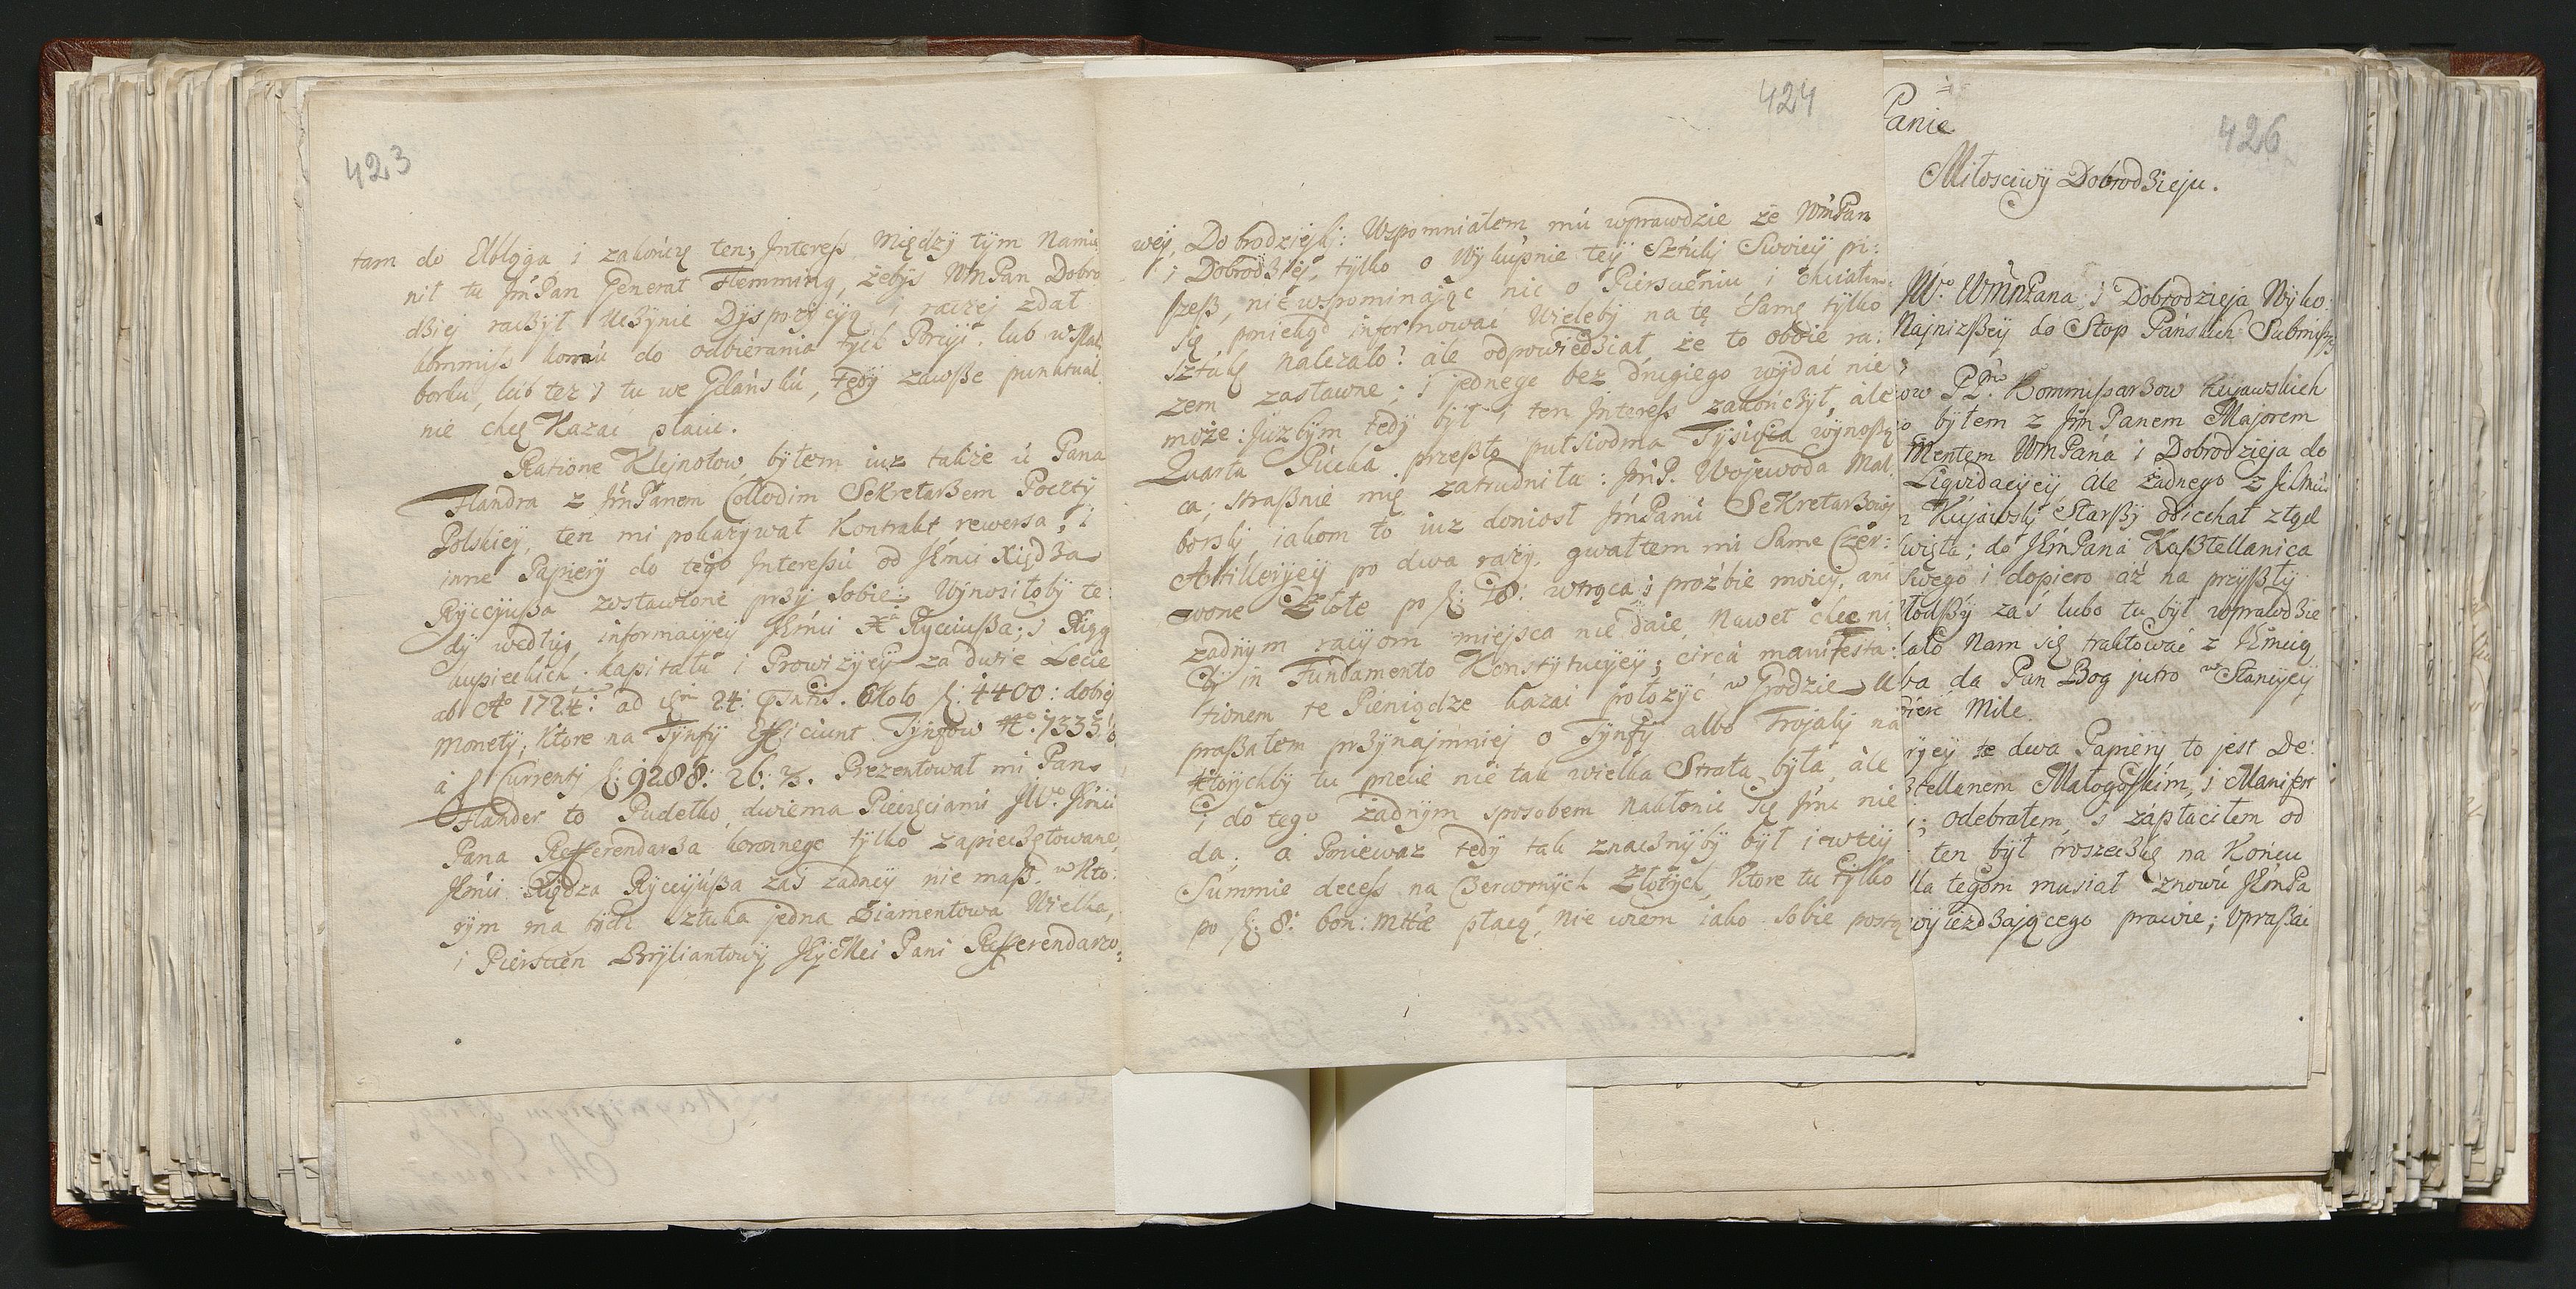 423
tam do Elbląga i zakończę ten; Interess. Między tym Namie
nił tu JmPan Generał Flemming, żebyś WmPan Dobro
dziej raczył uczynić Dyspozycyą, i raczej zdał
kommiss komu do odbierania tych Porcyi, lub w Mal
borku, lub też y tu we Gdańsku, tedy zawsze punktual
nie chcę Kazać płacić.
Ratione Klejnotow, byłem iuz takze u Pana
Flandra z JmPanem Collodim SekretarBem Poczty
Polskiey, ten mi pokazywał Kontrakt rewersa, i
inne Papiery do tego Interessu od JEmci XiędBa
Ryccyußa zostawione przy sobie: Wynosiłoby te:
dy według informacyey JEmci Xa Ryciußa; i Xiąg
kupieckich kapitału i Prowizyey za dwie Lecie
ab Ao 1724: ad 24: około f: 4400: dobrej
Monety, Ktore na Tynfy Efficiunt Tynfow No. 7333 1/3
à f Currentj f: 9288: 26: 2/3. Prezentował mi Pan
Flander to Pudełko dwiema Pieczęciami JWo Jmci
Pana Refferendarza koronnego tylko zapieczętowane,
JEmci Xiędza Ryccyußa zaś zadney nie maß. w Kto:
rym ma bydź Sztuka jedna Diamentowa Wielka,
i Pierscień Bryliantowy JEyMci Pani Refferendarzo:
424
wey, Dobrodziejki: Wspomniałem mu wprawdzie że WmPan
i Dobrodziej, tylko o Wykupnie tey Sztuki Swoiey pi:
szeß, nie wspominając nic o Pierscieniu i chciałem
się poniekąd informować Wieleby na tę Samę tylko
Sztukę należało? ale odpowiedział, że to oboie ra:
zem zastawne; i jednego bez drugiego wydać nie
może: Juzbym tedy był i ten Interess zakończył, ale
Quarta Pucka przeßło pułsiodma Tysiąca wynoßą
ca; straßnie mię zatrudniła: JmP. Woiewoda Mal
borski iakom to iuz doniosł JmPanu SeKretarBowi
Artilleryey po dwa razy, gwałtem mi Same Czer:
wone Złote po f: 18: wtrąca i proźbie moiey, ani
zadnym racyom miejsca nie daie, Nawet chce mi
in Fundamento Konstytucyey; circa manifesta:
tionem te Pieniądze kazać położyć w Grodzie U
praßałem przynajmniej o Tynfy albo Trojaki na
ktorychby tu przecie nie tak wielka Strata była, ale
i do tego żadnym sposobem nakłonić się Jmć nie
da; a Poniewaz tedy tak znaczny by był i w tey
Summie decess na Czerwonych Złotych, ktore tu tylko
po f: 8: bon: mttae płacą, nie wiem iako sobie postą
426
Panie
Miłosciwy Dobrodzieju.
JWo. WmPana; i Dobrodzieja Wyko:
Najnizßey do Stop Pańskich Submiss
ow PPw. Kommissarzow Kujawskich
byłem z Jm Panem Majorem
Mentem WmPana i Dobrodzieja do
Liqvidacyey ale żadnego z
Kujawski Starßy odiechał ztąd
Swięta; do JEmPana Kaßtellanica
Swego i dopiero aż na przyßły
łodßy zaś lubo tu był wprawdzie
ało Nam się traktować z JEmcią
ba da Pan Bog jutro w Stancyey
Mile.
ryey te dwa Papiery to jest De:
Btellanem Małogoskim, i Manifest
; odebrałem i zapłaciłem od
ten był troszeczkę na Końcu
lla tegom musiał znowu JEmPa
wyiezdBającego prawie; upraßać